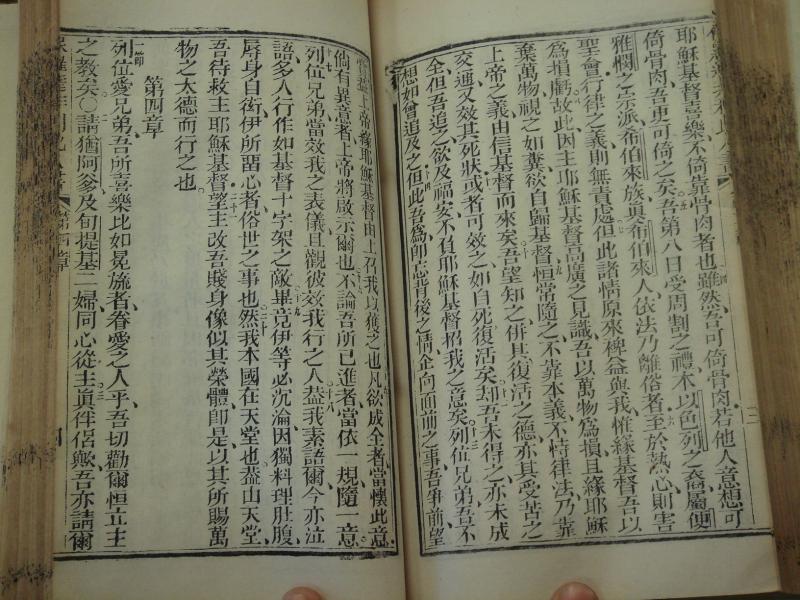 耶穌基督喜樂不倚靠骨肉者也雖然吾可倚骨肉若他人意想可
倚骨肉吾更可倚之矣吾第八日受周割之禮本以色列之裔屬便
雅憫之宗派希伯來族眞希伯來人依法乃離俗者至於熱心則害
聖會行律之義則無責處但此諸情原來裨益與我惟緣基督吾以
爲損虧故此因主耶穌基督高廣之見識吾以萬物爲損且緣耶穌
棄萬物視之如糞欲自歸基督恒常隨之不靠本義不恃律法乃靠
上帝之義由信基督而來矣吾望知之併其復活之德亦其受苦之
交通又效其死狀或者可效之如自死復活矣却吾未得之亦未成
全但吾追之欲及福安不負耶穌基督招我之意矣列位兄弟吾不
想如曾追及之但此吾爲卽忘背後之情企向面前之事吾爭前望
上帝緣耶穌基督由上召我以獲之也凡欲成全者當懷此意
倘有異意者上帝將啟示爾也不論吾所已進者當依一規隨一意
列位兄弟當效我之表儀且觀彼效我行之人葢我素語爾今亦泣
語多人行作如基督十字架之敵畢竟伊等必沉淪因獨料理肚腹
辱身自衒伊所畱心者俗世之事也然我本國在天堂也葢由天堂
吾待救主耶穌基督望主改吾賤身像似其榮體卽是以其所賜萬
物之大德而行之也
第四章
列位愛兄弟吾所喜樂比如冕旒者眷愛之人乎吾切勸爾恒立主
之教矣〇請猶阿爹及旬提基二婦同心從主眞伴侶歟吾亦請爾
第四章